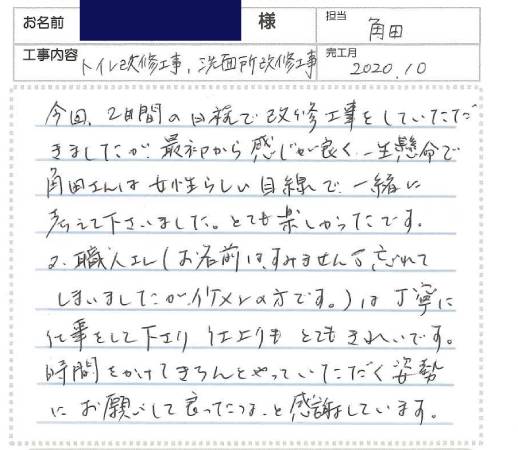 お名前 様 担当 角田
工事内容 トイレ改修工事、洗面所改修工事 完工月 2020.10
今回、2日間の日程で改修工事をしていただ
きましたが、最初から感じが良く、一生懸命で
角田さんは女性らしい目線で、一緒に
考えて下さいました。とても楽しかったです。
又、職人さん(お名前は、すみません 忘れて
しまいましたが、イケメンの方です。)は丁寧に
仕事をして下さり 仕上りも とてもきれいです。
時間をかけてきちんとやっていただく姿勢
に お願いして良かったな、と感謝しています。